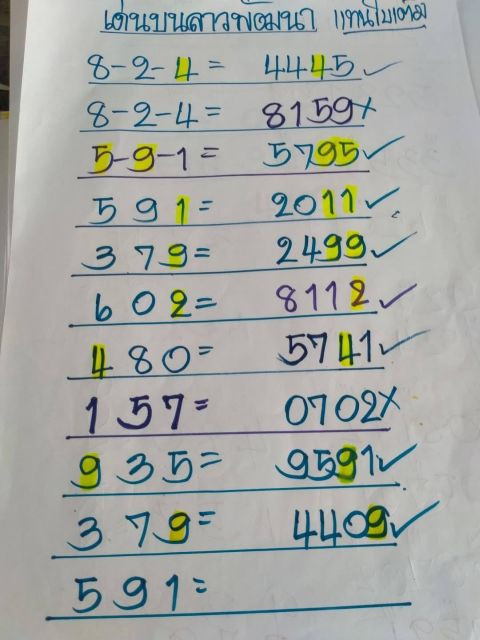 เด่นบนลาวพัฒนา แทนใบเต็ม
8-2-4= 4445✓
8-2-4= 8159×
5-9-1= 5795✓
591= 2011✓
379= 2499✓
602= 8112✓
480= 5741✓
157= 0702×
935= 9591✓
379= 4409✓
591=